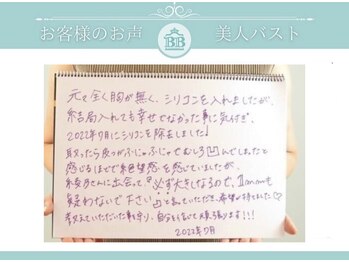 お客様のお声
BB
美人バスト
元々全く胸が無く、シリコンを入れましたが、
結局入れても幸せでなかった事に気付き、
2022年7月にシリコンを除去しました!
取ったら皮っがふにゃふにゃでむしろ凹んでしまったと
感じるほどで絶望感を感じていましたが、
さんに出会って『必ず大きくなるので、1mmmも
疑わないで下さい』と言っていただき、希望が持てました♡
教えていただいた事を守り、自分を信じて頑張ります!!!
2022年7月